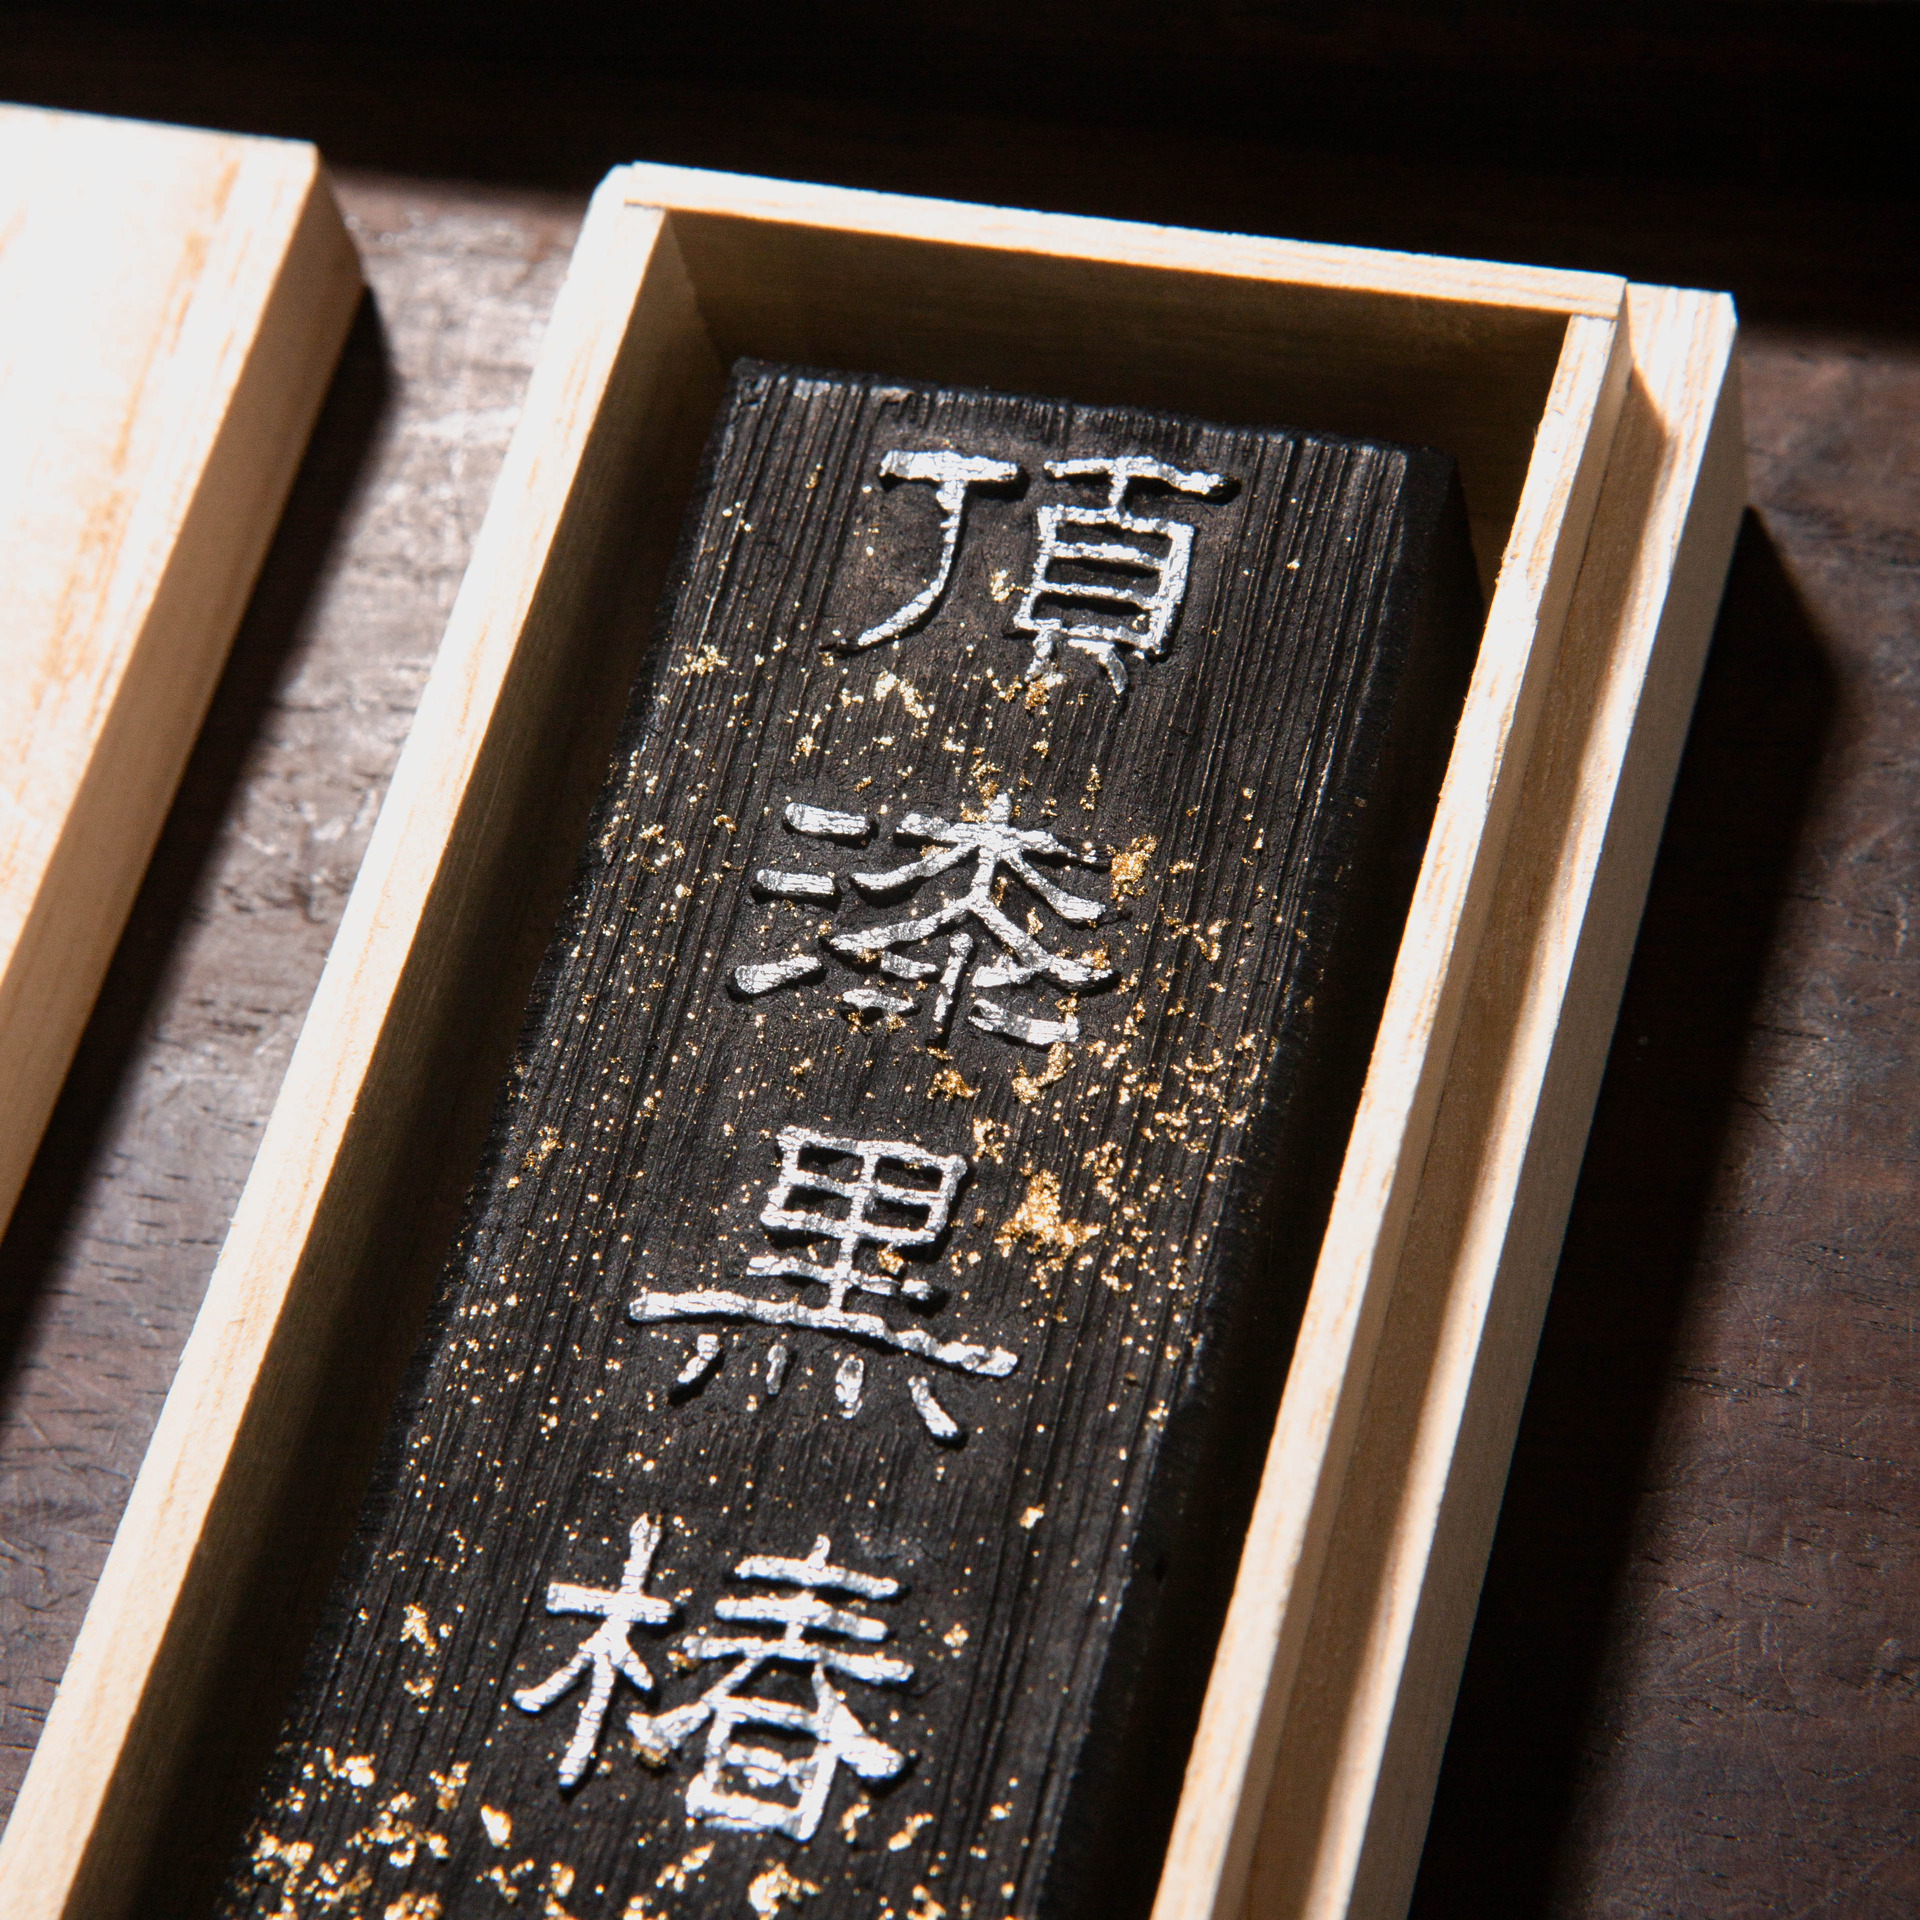 頂漆黒椿